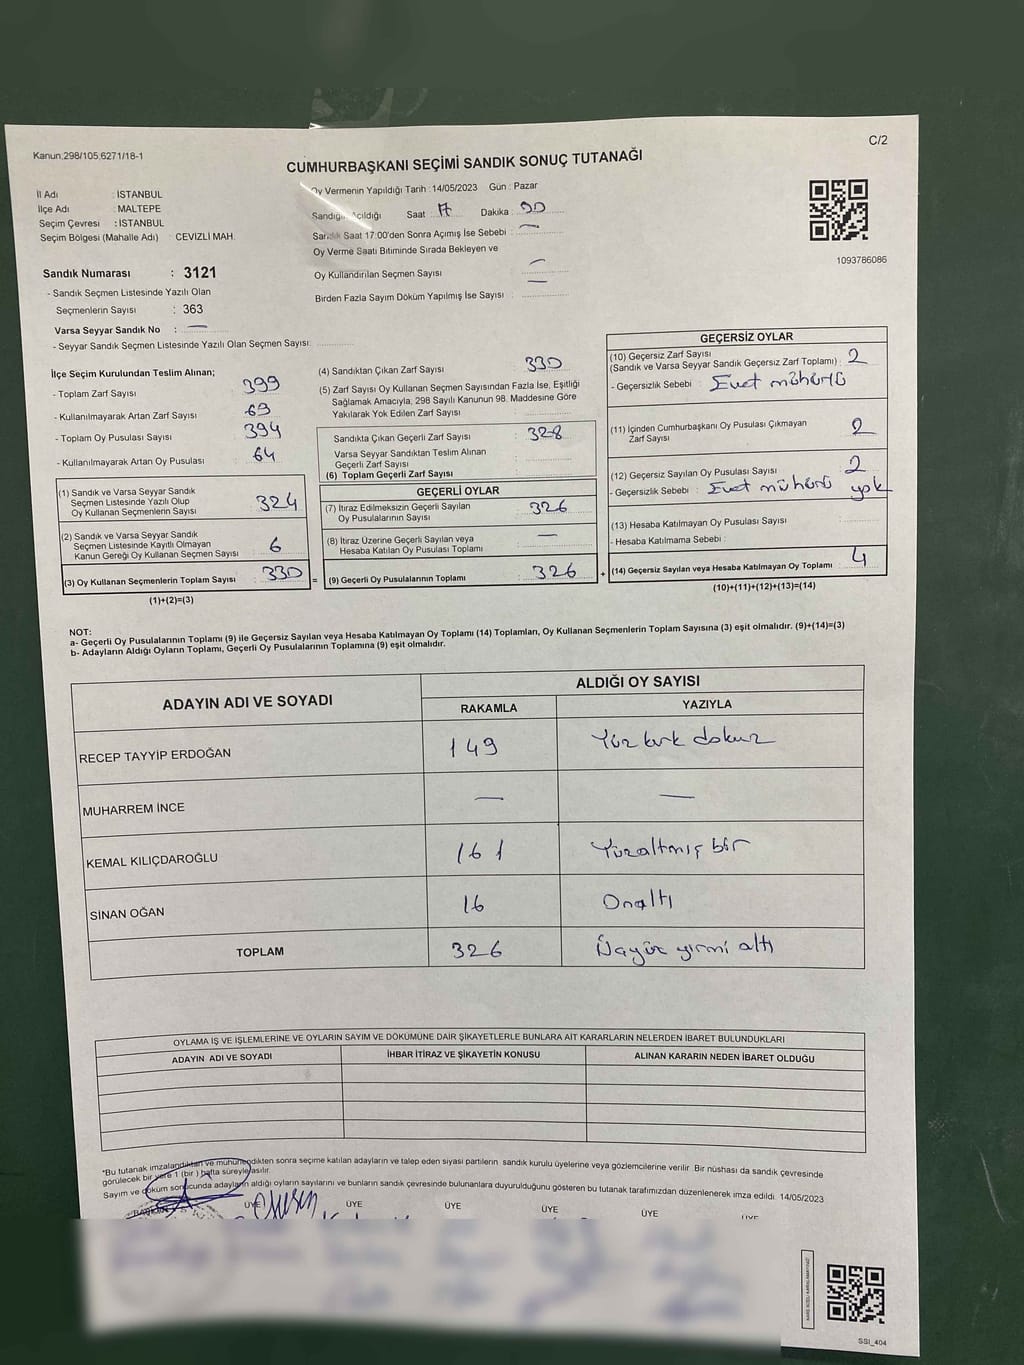 Kanun,298/105,6271/18-1
C/2
CUMHURBAŞKANI SEÇİMİ SANDIK SONUÇ TUTANAĞI
İl Adı : İSTANBUL
İlçe Adı : MALTEPE
Seçim Çevresi : İSTANBUL
Seçim Bölgesi (Mahalle Adı) : CEVİZLİ MAH.
Oy Vermenin Yapıldığı Tarih :14/05/2023 Gün : Pazar
Sandığın Açıldığı Saat 17 Dakika 00
Sandık Saat 17:00'den Sonra Açımış İse Sebebi : —
Oy Verme Saati Bitiminde Sırada Bekleyen ve
Oy Kullandırılan Seçmen Sayısı : —
Birden Fazla Sayım Döküm Yapılmış İse Sayısı : —
1093786086
Sandık Numarası : 3121
- Sandık Seçmen Listesinde Yazılı Olan
Seçmenlerin Sayısı : 363
Varsa Seyyar Sandık No : —
- Seyyar Sandık Seçmen Listesinde Yazılı Olan Seçmen Sayısı:
İlçe Seçim Kurulundan Teslim Alınan;
- Toplam Zarf Sayısı : 399
- Kullanılmayarak Artan Zarf Sayısı : 69
- Toplam Oy Pusulası Sayısı : 394
- Kullanılmayarak Artan Oy Pusulası : 64
(1) Sandık ve Varsa Seyyar Sandık
Seçmen Listesinde Yazılı Olup
Oy Kullanan Seçmenlerin Sayısı : 324
(2) Sandık ve Varsa Seyyar Sandık
Seçmen Listesinde Kayıtlı Olmayan
Kanun Gereği Oy Kullanan Seçmen Sayısı : 6
(3) Oy Kullanan Seçmenlerin Toplam Sayısı : 330 =
(1)+(2)=(3)
(4) Sandıktan Çıkan Zarf Sayısı : 330
(5) Zarf Sayısı Oy Kullanan Seçmen Sayısından Fazla İse, Eşitliği
Sağlamak Amacıyla, 298 Sayılı Kanunun 98. Maddesine Göre
Yakılarak Yok Edilen Zarf Sayısı :
Sandıkta Çıkan Geçerli Zarf Sayısı : 328
Varsa Seyyar Sandıktan Teslim Alınan
Geçerli Zarf Sayısı :
(6) Toplam Geçerli Zarf Sayısı
GEÇERLİ OYLAR
(7) İtiraz Edilmeksizin Geçerli Sayılan
Oy Pusulalarının Sayısı : 326
(8) İtiraz Üzerine Geçerli Sayılan veya
Hesaba Katılan Oy Pusulası Toplamı : —
(9) Geçerli Oy Pusulalarının Toplamı : 326 +
GEÇERSİZ OYLAR
(10) Geçersiz Zarf Sayısı
(Sandık ve Varsa Seyyar Sandık Geçersiz Zarf Toplamı) : 2
- Geçersizlik Sebebi : Evet mühürlü
(11) İçinden Cumhurbaşkanı Oy Pusulası Çıkmayan
Zarf Sayısı : 2
(12) Geçersiz Sayılan Oy Pusulası Sayısı : 2
- Geçersizlik Sebebi : Evet mührü yok
(13) Hesaba Katılmayan Oy Pusulası Sayısı :
- Hesaba Katılmama Sebebi :
(14) Geçersiz Sayılan veya Hesaba Katılmayan Oy Toplamı : 4
(10)+(11)+(12)+(13)=(14)
NOT:
a- Geçerli Oy Pusulalarının Toplamı (9) ile Geçersiz Sayılan veya Hesaba Katılmayan Oy Toplamı (14) Toplamları, Oy Kullanan Seçmenlerin Toplam Sayısına (3) eşit olmalıdır. (9)+(14)=(3)
b- Adayların Aldığı Oyların Toplamı, Geçerli Oy Pusulalarının Toplamına (9) eşit olmalıdır.
ADAYIN ADI VE SOYADI
ALDIĞI OY SAYISI
RAKAMLA YAZIYLA
RECEP TAYYİP ERDOĞAN 149 Yüz kırk dokuz
MUHARREM İNCE — —
KEMAL KILIÇDAROĞLU 161 Yüzaltmış bir
SİNAN OĞAN 16 Onaltı
TOPLAM 326 Üçyüz yirmi altı
OYLAMA İŞ VE İŞLEMLERİNE VE OYLARIN SAYIM VE DÖKÜMÜNE DAİR ŞİKAYETLERLE BUNLARA AİT KARARLARIN NELERDEN İBARET BULUNDUKLARI
ADAYIN ADI VE SOYADI İHBAR İTİRAZ VE ŞİKAYETİN KONUSU ALINAN KARARIN NEDEN İBARET OLDUĞU
*Bu tutanak imzalandıktan ve mühürlendikten sonra seçime katılan adayların ve talep eden siyasi partilerin sandık kurulu üyelerine veya gözlemcilerine verilir. Bir nüshası da sandık çevresinde
görülecek bir yere 1 (bir ) hafta süreyle asılır.
Sayım ve döküm sonucunda adayların aldığı oyların sayılarını ve bunların sandık çevresinde bulunanlara duyurulduğunu gösteren bu tutanak tarafımızdan düzenlenerek imza edildi. 14/05/2023
BAŞKAN ÜYE ÜYE ÜYE ÜYE ÜYE ÜYE
SSI_404